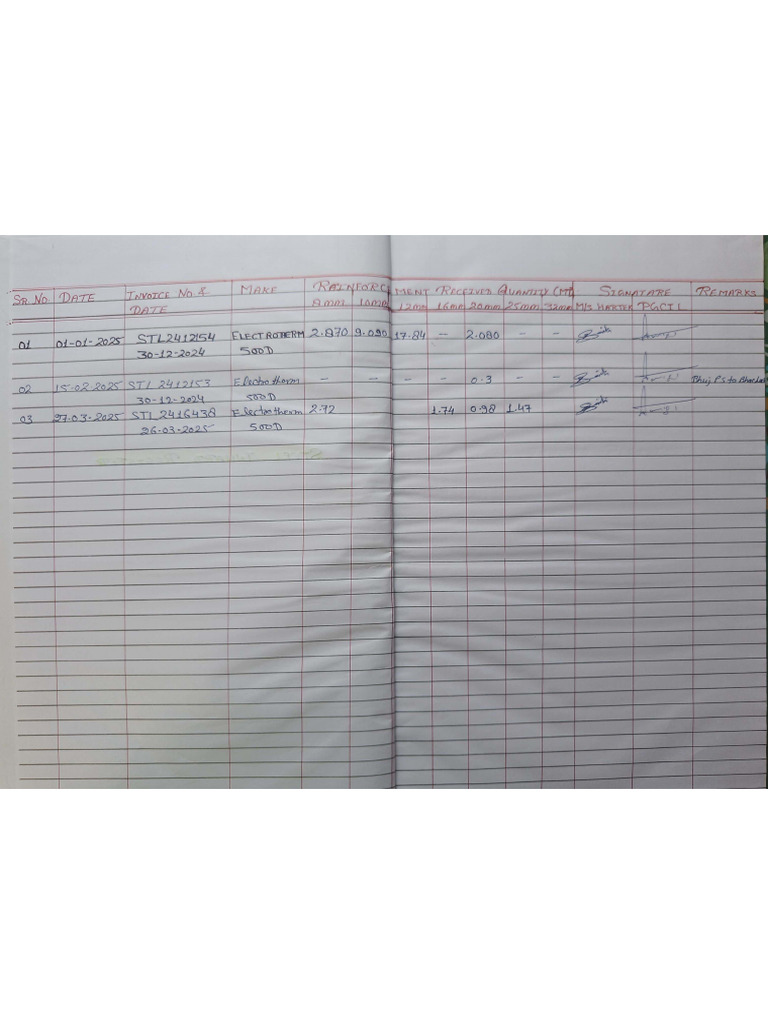 SR.NO DATE INVOICE NO & DATE MAKE REINFORCEMENT RECEIVED QUANTITY (MT) SIGNATARE REMARKS
8mm 10mm 12mm 16mm 20mm 25mm 32mm M/s HARTEK PGCIL
01 01-01-2025 STL2412154 ELECTROTHERM 2.870 9.090 17.84 - 2.080 - -
30-12-2024 500D
02 15-02-2025 STL 2412153 Electrotherm - - - - 0.3 - - Bhuj PS to
30-12-2024 500D
03 27-03-2025 STL2416438 Electrotherm 2.72 1.74 0.98 1.47
26-03-2025 500D